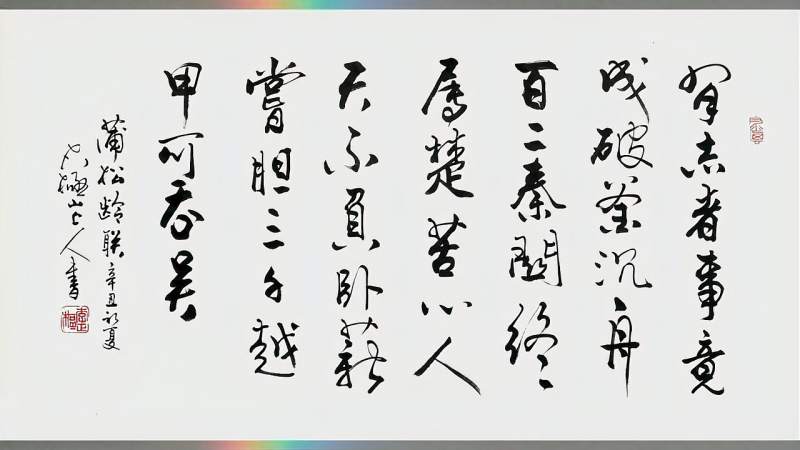 有志者事竟
成破釜沉舟
百二秦關終
屬楚苦心人
天不負卧薪
嘗胆三千越
甲可吞吴
蒲松龄联辛丑初夏
極山上人書